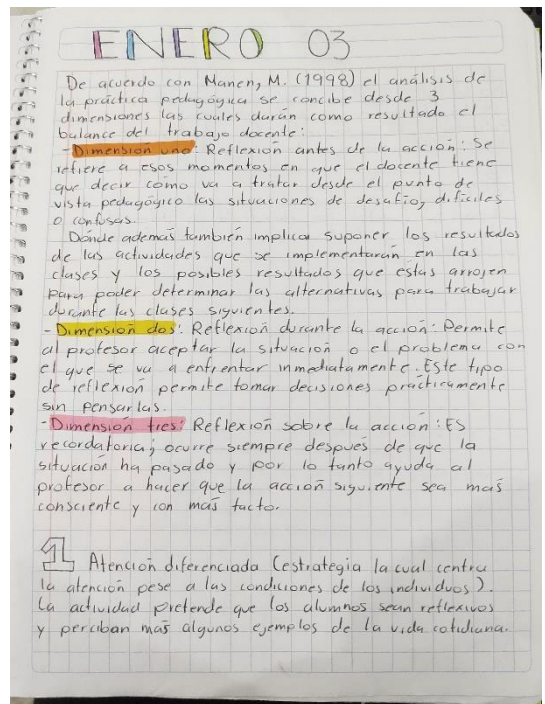 ENERO 03
De acuerdo con Manen, M. (1998) el análisis de
la práctica pedagógica se concibe desde 3
dimensiones las cuales darán como resultado el
balance del trabajo docente:
-Dimensión uno: Reflexión antes de la acción: Se
refiere a esos momentos en que el docente tiene
que decir cómo va a tratar desde el punto de
vista pedagógico las situaciones de desafío, difíciles
o confusas.
Dónde además también implica suponer los resultados
de las actividades que se implementarán en las
clases y los posibles resultados que estas arrojen
para poder determinar las alternativas para trabajar
durante las clases siguientes.
-Dimensión dos: Reflexión durante la acción: Permite
al profesor aceptar la situación o el problema con
el que se va a enfrentar inmediatamente. Este tipo
de reflexión permite tomar decisiones prácticamente
sin pensarlas.
-Dimensión tres: Reflexión sobre la acción: Es
recordatoria; ocurre siempre después de que la
situación ha pasado y por lo tanto ayuda al
profesor a hacer que la acción siguiente sea más
consciente y con más tacto.
1 Atención diferenciada (estrategia la cual centra
la atención pese a las condiciones de los individuos).
La actividad pretende que los alumnos sean reflexivos
y perciban más algunos ejemplos de la vida cotidiana.